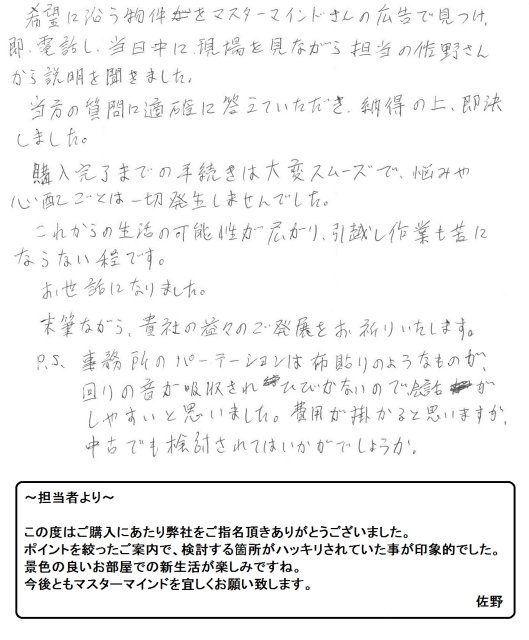 希望に沿う物件をマスターマインドさんの広告で見つけ、
即、電話し、当日中に現場を見ながら担当の佐野さん
から説明を聞きました。
当方の質問に適確に答えていただき、納得の上、即決
しました。
購入完了までの手続きは大変スムーズで、悩みや
心配ごとは一切発生しませんでした。
これからの生活の可能性が広がり、引越し作業も苦に
ならない程です。
お世話になりました。
末筆ながら、貴社の益々のご発展をお祈りいたします。
P.S. 事務所のパーテーションは布貼りのようなものが、
回りの音が吸収されひびかないので会話が
しやすいと思いました。費用が掛かると思いますが、
中古でも検討されてはいかがでしょうか。
～担当者より～
この度はご購入にあたり弊社をご指名頂きありがとうございました。
ポイントを絞ったご案内で、検討する箇所がハッキリされていた事が印象的でした。
景色の良いお部屋での新生活が楽しみですね。
今後ともマスターマインドを宜しくお願い致します。
佐野